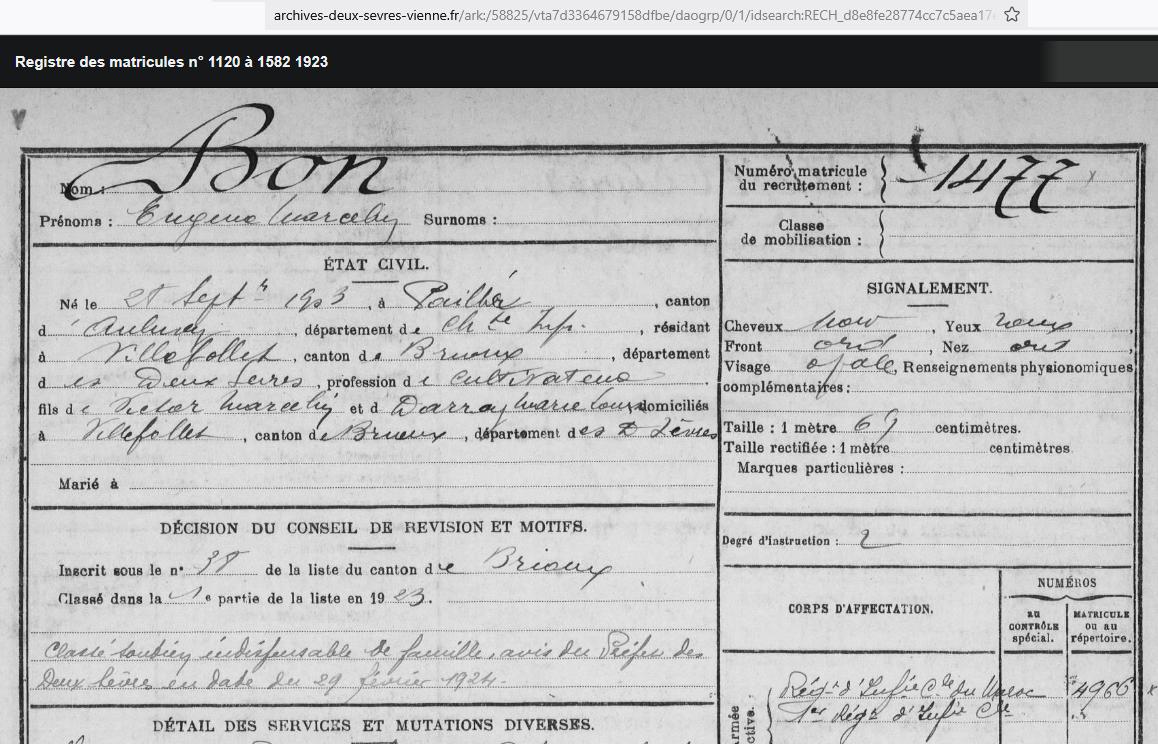 archives-deux-sevres-vienne.fr/ark:/58825/vta7d3364679158dfbe/daogrp/0/1/idsearch:RECH_d8e8fe28774cc7c5aea17
Registre des matricules n° 1120 à 1582 1923
Nom : Bon
Prénoms : Eugène Marcelin Surnoms :
ÉTAT CIVIL.
Né le 28 Septre 1903, à Paillé, canton
d'Aulnay, département de Chte Infre, résidant
à Villefollet, canton de Brioux, département
des Deux Sèvres, profession de cultivateur
fils de Victor Marcelin et d Darray Marie Louise domiciliés
à Villefollet, canton de Brioux, département des D Sèvres
Marié à
DÉCISION DU CONSEIL DE REVISION ET MOTIFS.
Inscrit sous le n° 38 de la liste du canton de Brioux
Classé dans la 1e partie de la liste en 1923.
Classé soutien indispensable de famille, avis du Préfet des
Deux Sèvres en date du 29 février 1924.
DÉTAIL DES SERVICES ET MUTATIONS DIVERSES.
Numéro matricule
du recrutement : 1477
Classe
de mobilisation :
SIGNALEMENT.
Cheveux noir, Yeux roux,
Front ord, Nez ord,
Visage ovale, Renseignements physionomiques
complémentaires :
Taille : 1 mètre 69 centimètres.
Taille rectifiée : 1 mètre centimètres
Marques particulières :
Degré d'instruction : 2
CORPS D'AFFECTATION.
NUMÉROS
AU
CONTRÔLE
spécial.
MATRICULE
ou au
répertoire.
Armée
active.
Régt d'Infie Cle du Maroc 4966
1er Régt d'Infie Cle